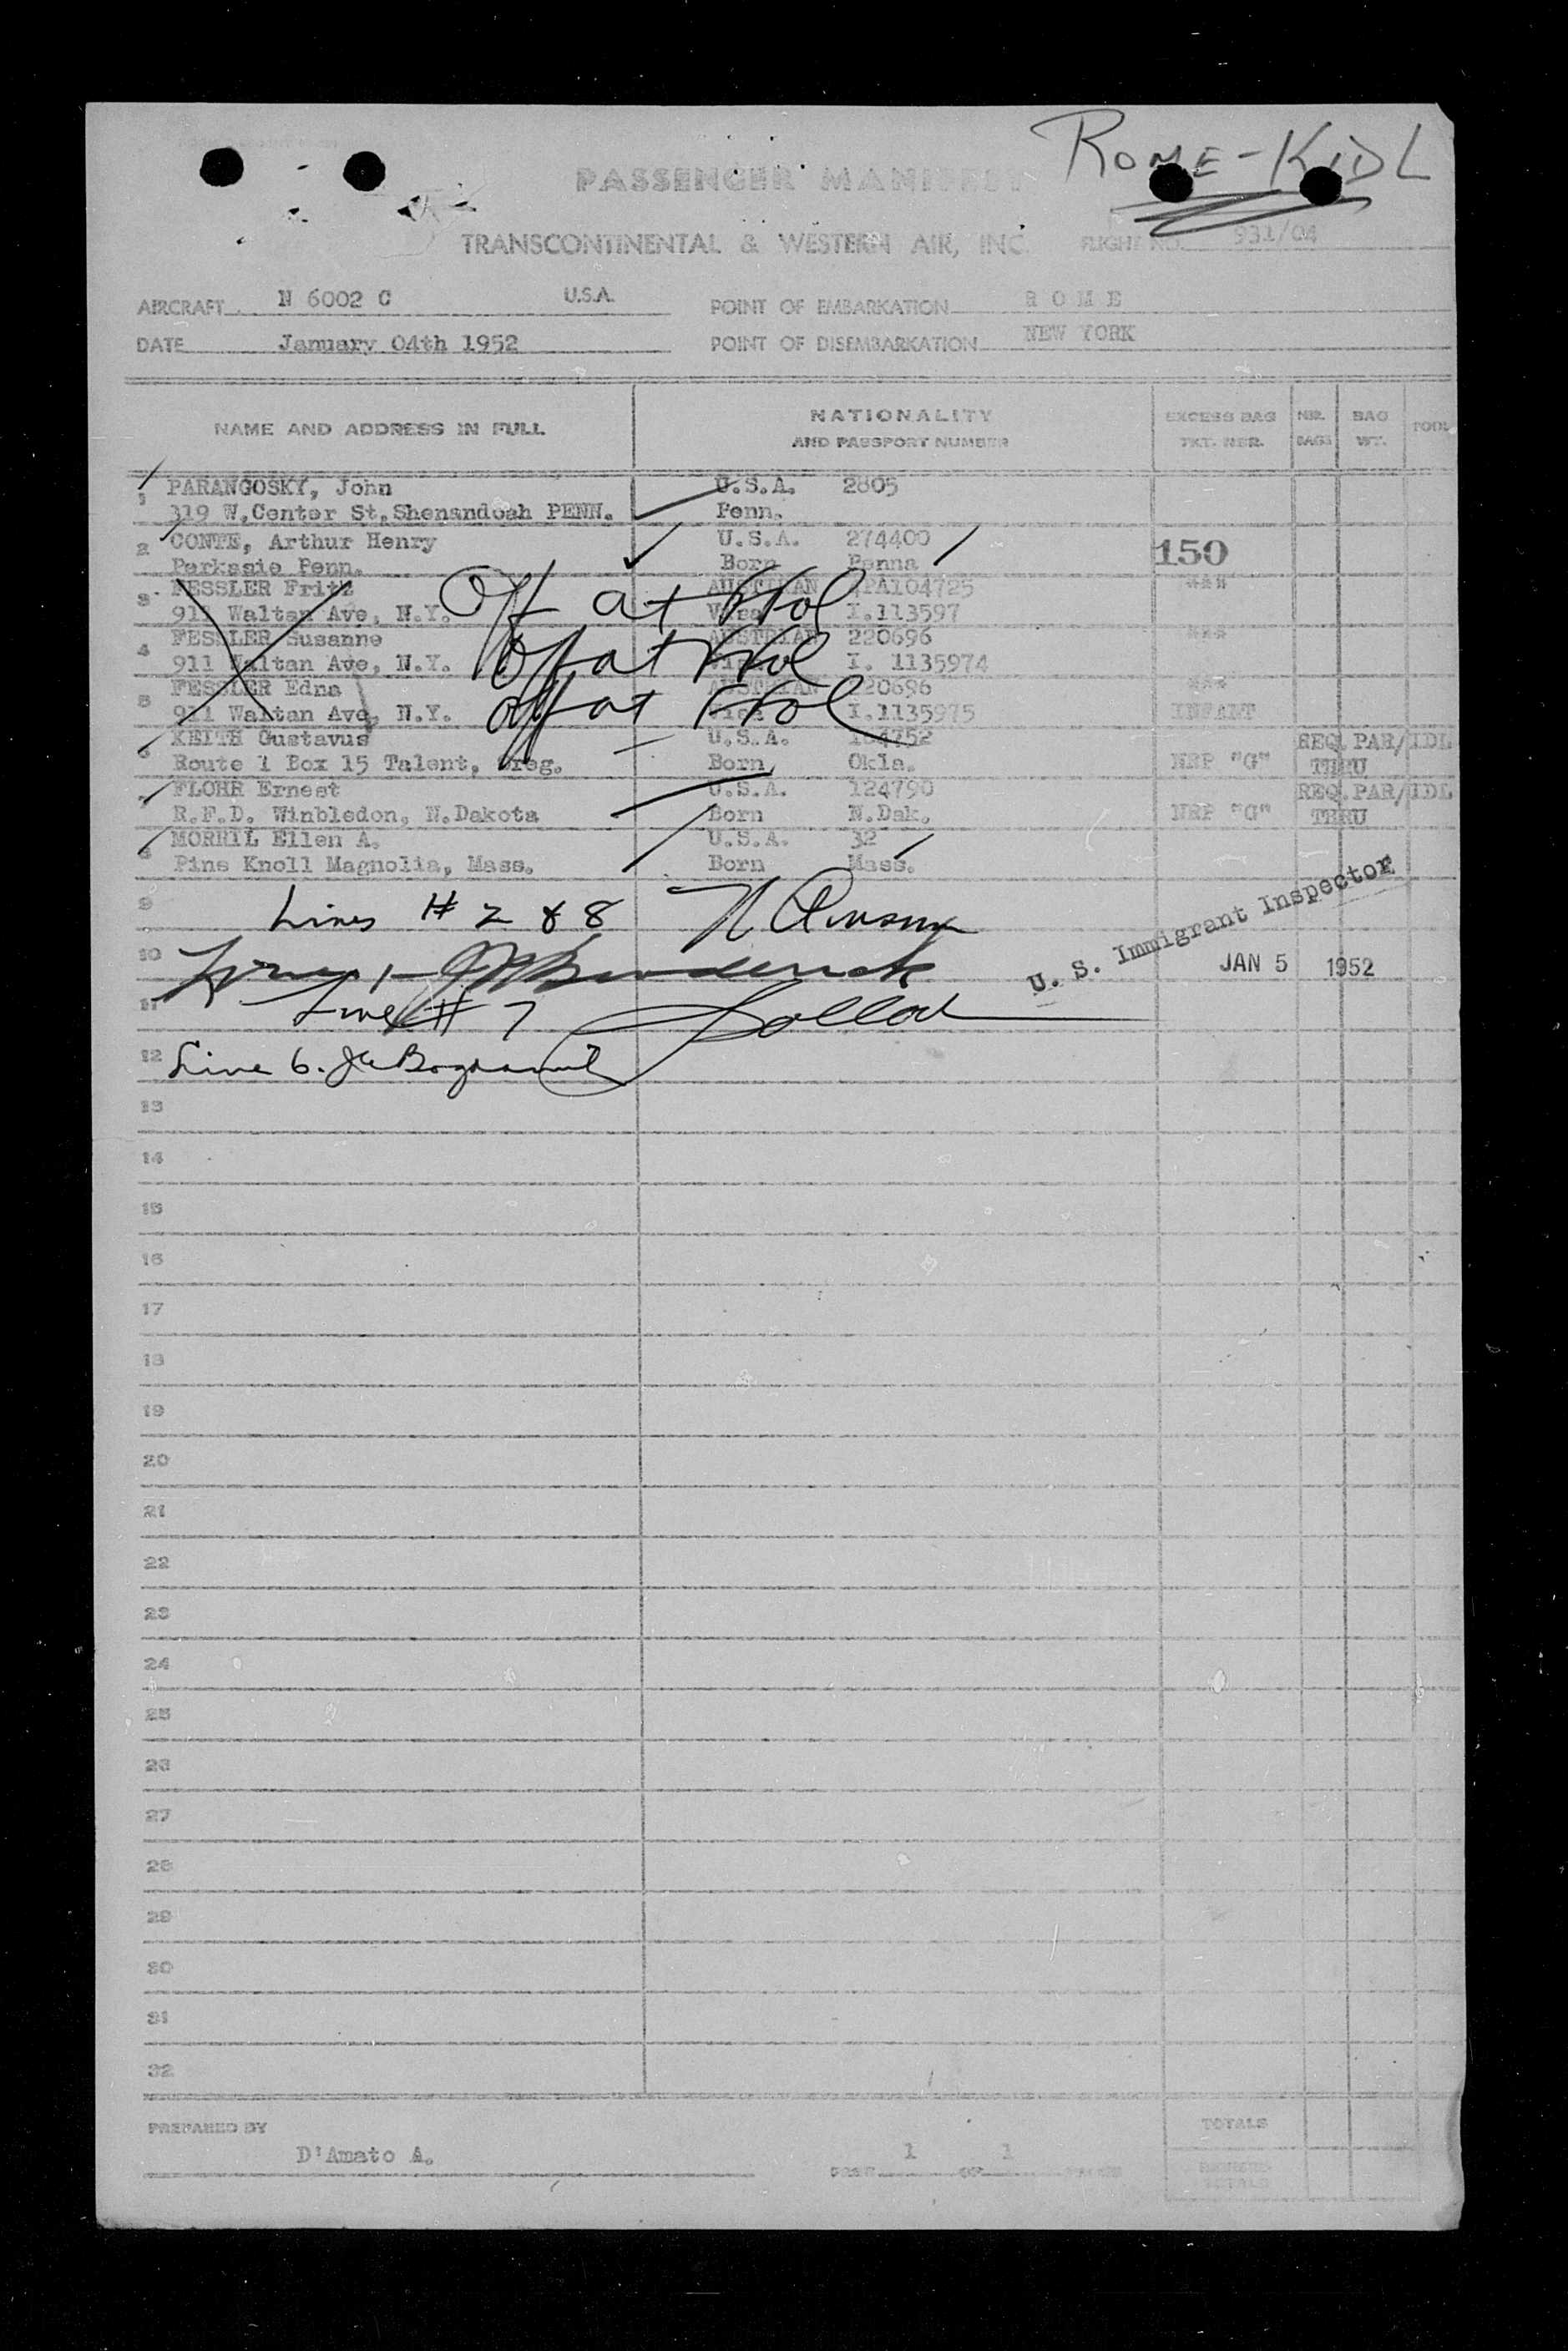 ROME-KIDL
PASSENGER MANIFEST
TRANSCONTINENTAL & WESTERN AIR, INC. FLIGHT NO. 931/04
AIRCRAFT N 6002 C U.S.A. POINT OF EMBARKATION R O M E
DATE January 04th 1952 POINT OF DISEMBARKATION NEW YORK
NAME AND ADDRESS IN FULL NATIONALITY AND PASSPORT NUMBER EXCESS BAG TKT. NBR. NBR. BAGS BAG WT.
1 PARANGOSKY, John U.S.A. 2805
319 W.Center St.Shenandoah PENN. Penn.
2 CONTE, Arthur Henry U.S.A. 274400
Perkasie Penn. Born Penna 150
3 FESSLER Fritz Off at AUSTRIAN
911 Waltan Ave, N.Y. I.113597
4 FESSLER Susanne Off at AUSTRIAN 220696
911 Waltan Ave, N.Y. I. 1135974
5 FESSLER Edna Off at AUSTRIAN 220696
911 Waltan Ave, N.Y. I.1135975 INFANT
6 KEITH Gustavus U.S.A. 164752 REQ.PAR/IDL
Route 1 Box 15 Talent, Oreg. Born Okla. NRP "G" THRU
7 FLOHR Ernest U.S.A. 124790 REQ.PAR/IDL
R.F.D. Winbledon, N.Dakota Born N.Dak. NRP "G" THRU
8 MORRIL Ellen A. U.S.A. 32
Pine Knoll Magnolia, Mass. Born Mass.
9 Lines # 2 & 8
U. S. Immigrant Inspector
10 JAN 5 1952
11 Line # 7
12 Line 6.
13
14
15
16
17
18
19
20
21
22
23
24
25
26
27
28
29
30
31
32
PREPARED BY TOTALS
D'Amato A. 1 OF 1
TOTALS